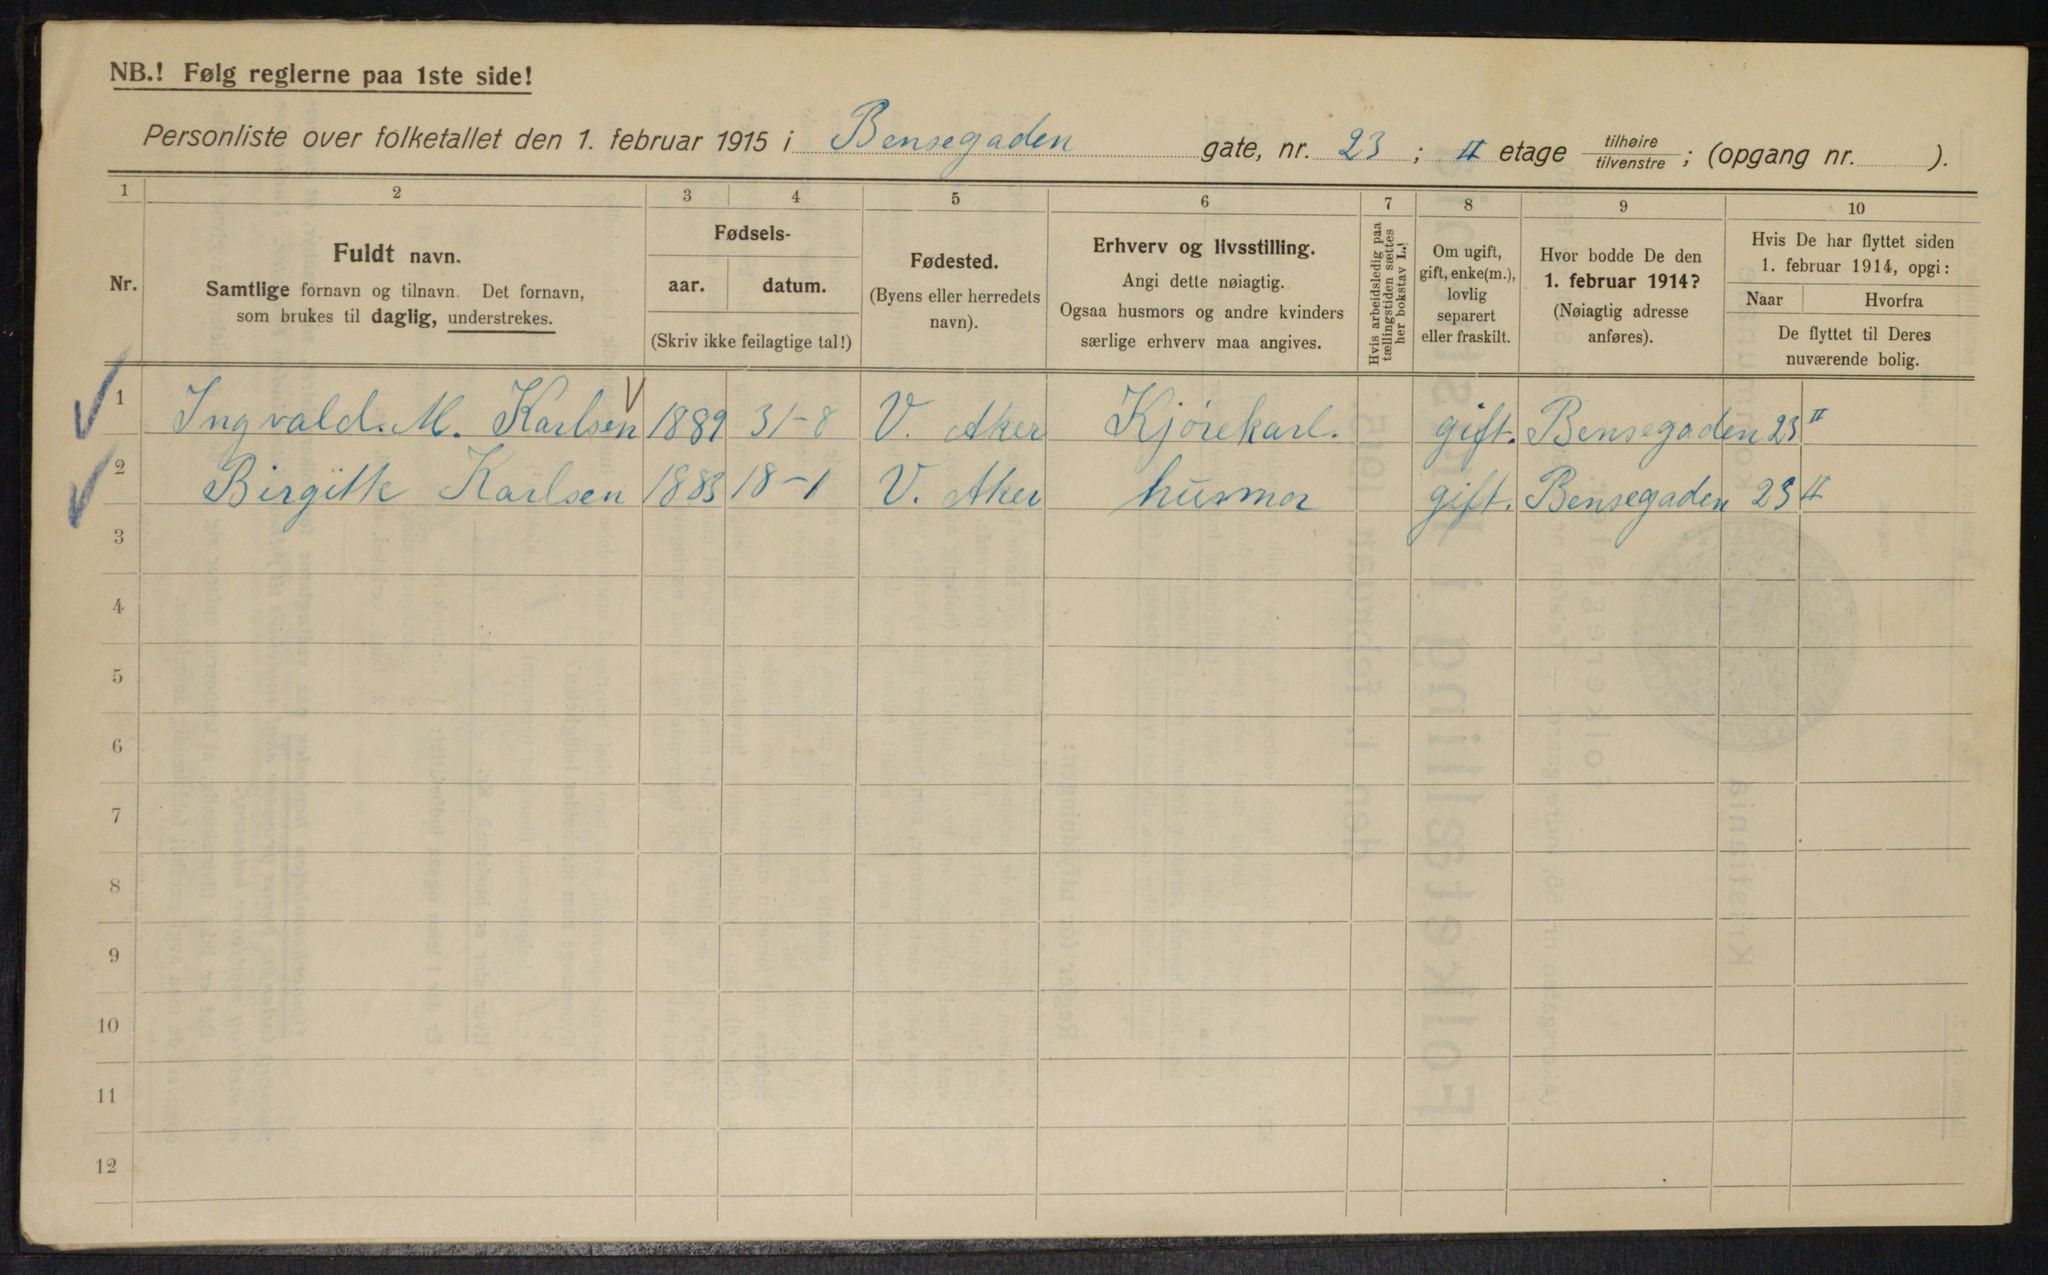 NB.! Følg reglerne paa 1ste side!
Personliste over folketallet den 1. februar 1915 i Bensegaden gate, nr. 23 ; II etage tilhøire / tilvenstre ; (opgang nr. ).
1 2 3 4 5 6 7 8 9 10
Nr.
Fuldt navn.
Samtlige fornavn og tilnavn. Det fornavn,
som brukes til daglig, understrekes.
Fødsels-
aar. datum.
(Skriv ikke feilagtige tal!)
Fødested.
(Byens eller herredets
navn).
Erhverv og livsstilling.
Angi dette nøiagtig.
Ogsaa husmors og andre kvinders
særlige erhverv maa angives.
Hvis arbeidsledig paa
tællingstiden sættes
her bokstav L.!
Om ugift,
gift, enke(m.),
lovlig
separert
eller fraskilt.
Hvor bodde De den
1. februar 1914?
(Nøiagtig adresse
anføres).
Hvis De har flyttet siden
1. februar 1914, opgi:
Naar Hvorfra
De flyttet til Deres
nuværende bolig.
1 Ingvald. M. Karlsen 1889 31-8 V. Aker Kjørekarl. gift. Bensegaden 23 II
2 Birgitte Karlsen 1883 18-1 V. Aker husmor gift. Bensegaden 23 II
3
4
5
6
7
8
9
10
11
12